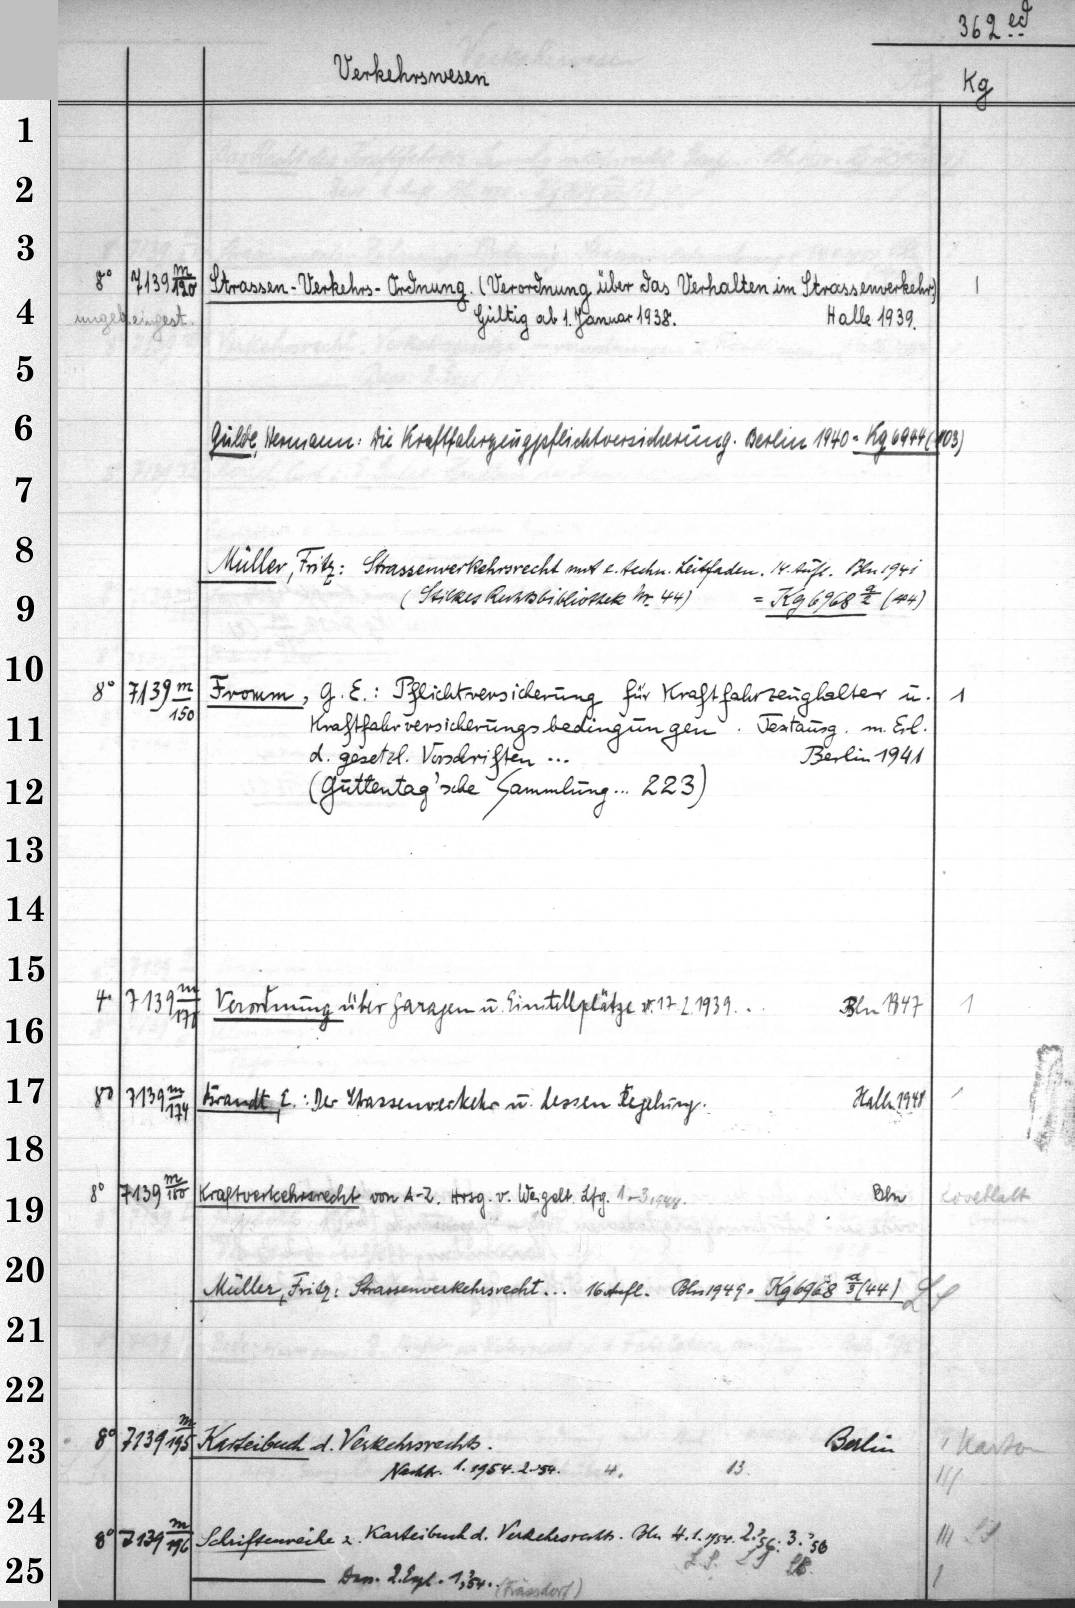 362 ed
Verkehrswesen Kg
1
2
3
8° 7139 m/120 Strassen-Verkehrs-Ordnung. (Verordnung über das Verhalten im Strassenverkehr) 1
4 ungeb. eingest. Gültig ab 1. Januar 1938. Halle 1939.
5
6 Gülde, Hermann: Die Kraftfahrzeugpflichtversicherung. Berlin 1940 = Kg 6944 (103)
7
8 Müller, Fritz: Strassenverkehrsrecht mit e. techn. Leitfaden. 14. Aufl. Bln 1941
9 (Stilkes Rechtsbibliothek Nr. 44) = Kg 6968 a/2 (44)
10 8° 7139 m/150 Fromm, G. E.: Pflichtversicherung für Kraftfahrzeughalter u. 1
11 Kraftfahrversicherungsbedingungen. Textausg. m. Erl.
d. gesetzl. Vorschriften ... Berlin 1941
12 (Guttentag'sche Sammlung... 223)
13
14
15
4° 7139 m/170 Verordnung über Garagen u. Einstellplätze v. 17.2.1939. .. Bln 1947 1
16
17 8° 7139 m/174 Brandt, E.: Der Strassenverkehr u. dessen Regelung. Halle 1948 1
18
19 8° 7139 m/180 Kraftverkehrsrecht von A-Z. Hrsg. v. Weigelt. Lfg. 1-3, 1948. Bln
20 Müller, Fritz: Strassenverkehrsrecht... 16. Aufl. Bln 1949 = Kg 6968 a/3 (44) LS
21
22
23 8° 7139 m/195 Karteibuch d. Verkehrsrechts. Berlin 1 Karton
Nachtr. 1. 1954. 2. 54. 4. 13. III
24 8° 7139 m/196 Schriftenreihe z. Karteibuch d. Verkehrsrechts. Bln 4. 1. 1954. 2. 56. 3. 56 III LS
L.S. LS LS.
25 Dass. 2. Expl. 1, 54.. 1